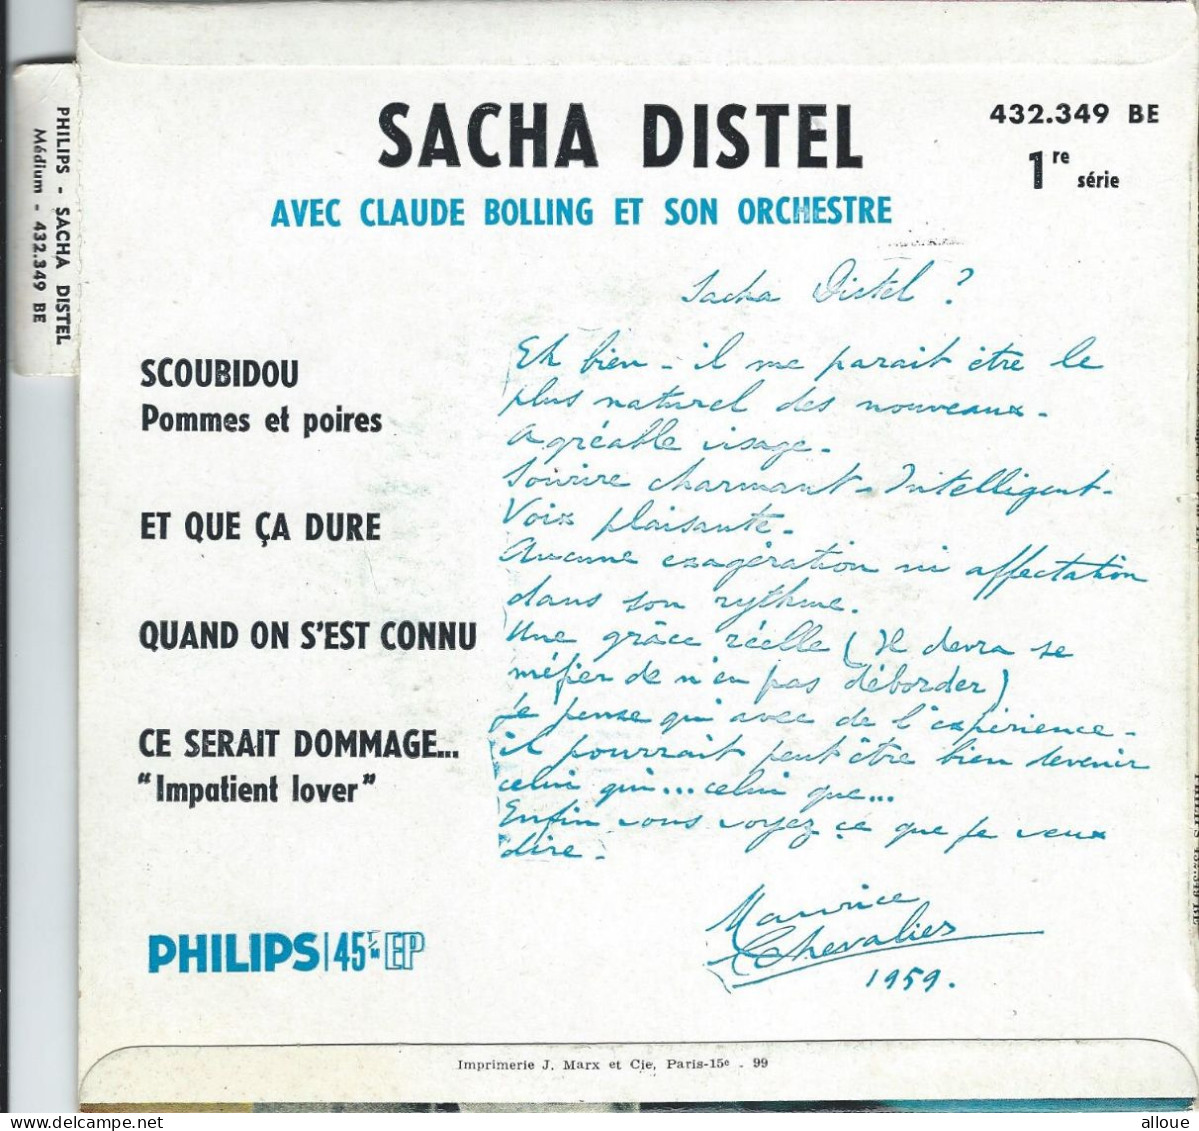 PHILIPS - SACHA DISTEL
Médium - 432.349 BE
SACHA DISTEL
432.349 BE
1re série
AVEC CLAUDE BOLLING ET SON ORCHESTRE
SCOUBIDOU
Pommes et poires
ET QUE ÇA DURE
QUAND ON S'EST CONNU
CE SERAIT DOMMAGE...
"Impatient lover"
Sacha Distel ?
Eh bien - il me parait être le
plus naturel des nouveaux -
Agréable visage -
Sourire charmant - Intelligent -
Voix plaisante -
Aucune exagération ni affectation
dans son rythme.
Une grâce réelle (Il devra se
méfier de n'en pas déborder)
Je pense qu'avec de l'expérience -
il pourrait peut être bien devenir
celui qui... celui que...
Enfin vous voyez ce que je veux
dire -
Maurice
Chevalier
1959.
PHILIPS 45 T/M EP
Imprimerie J. Marx et Cie, Paris-15e . 99
www.delcampe.net
alloue